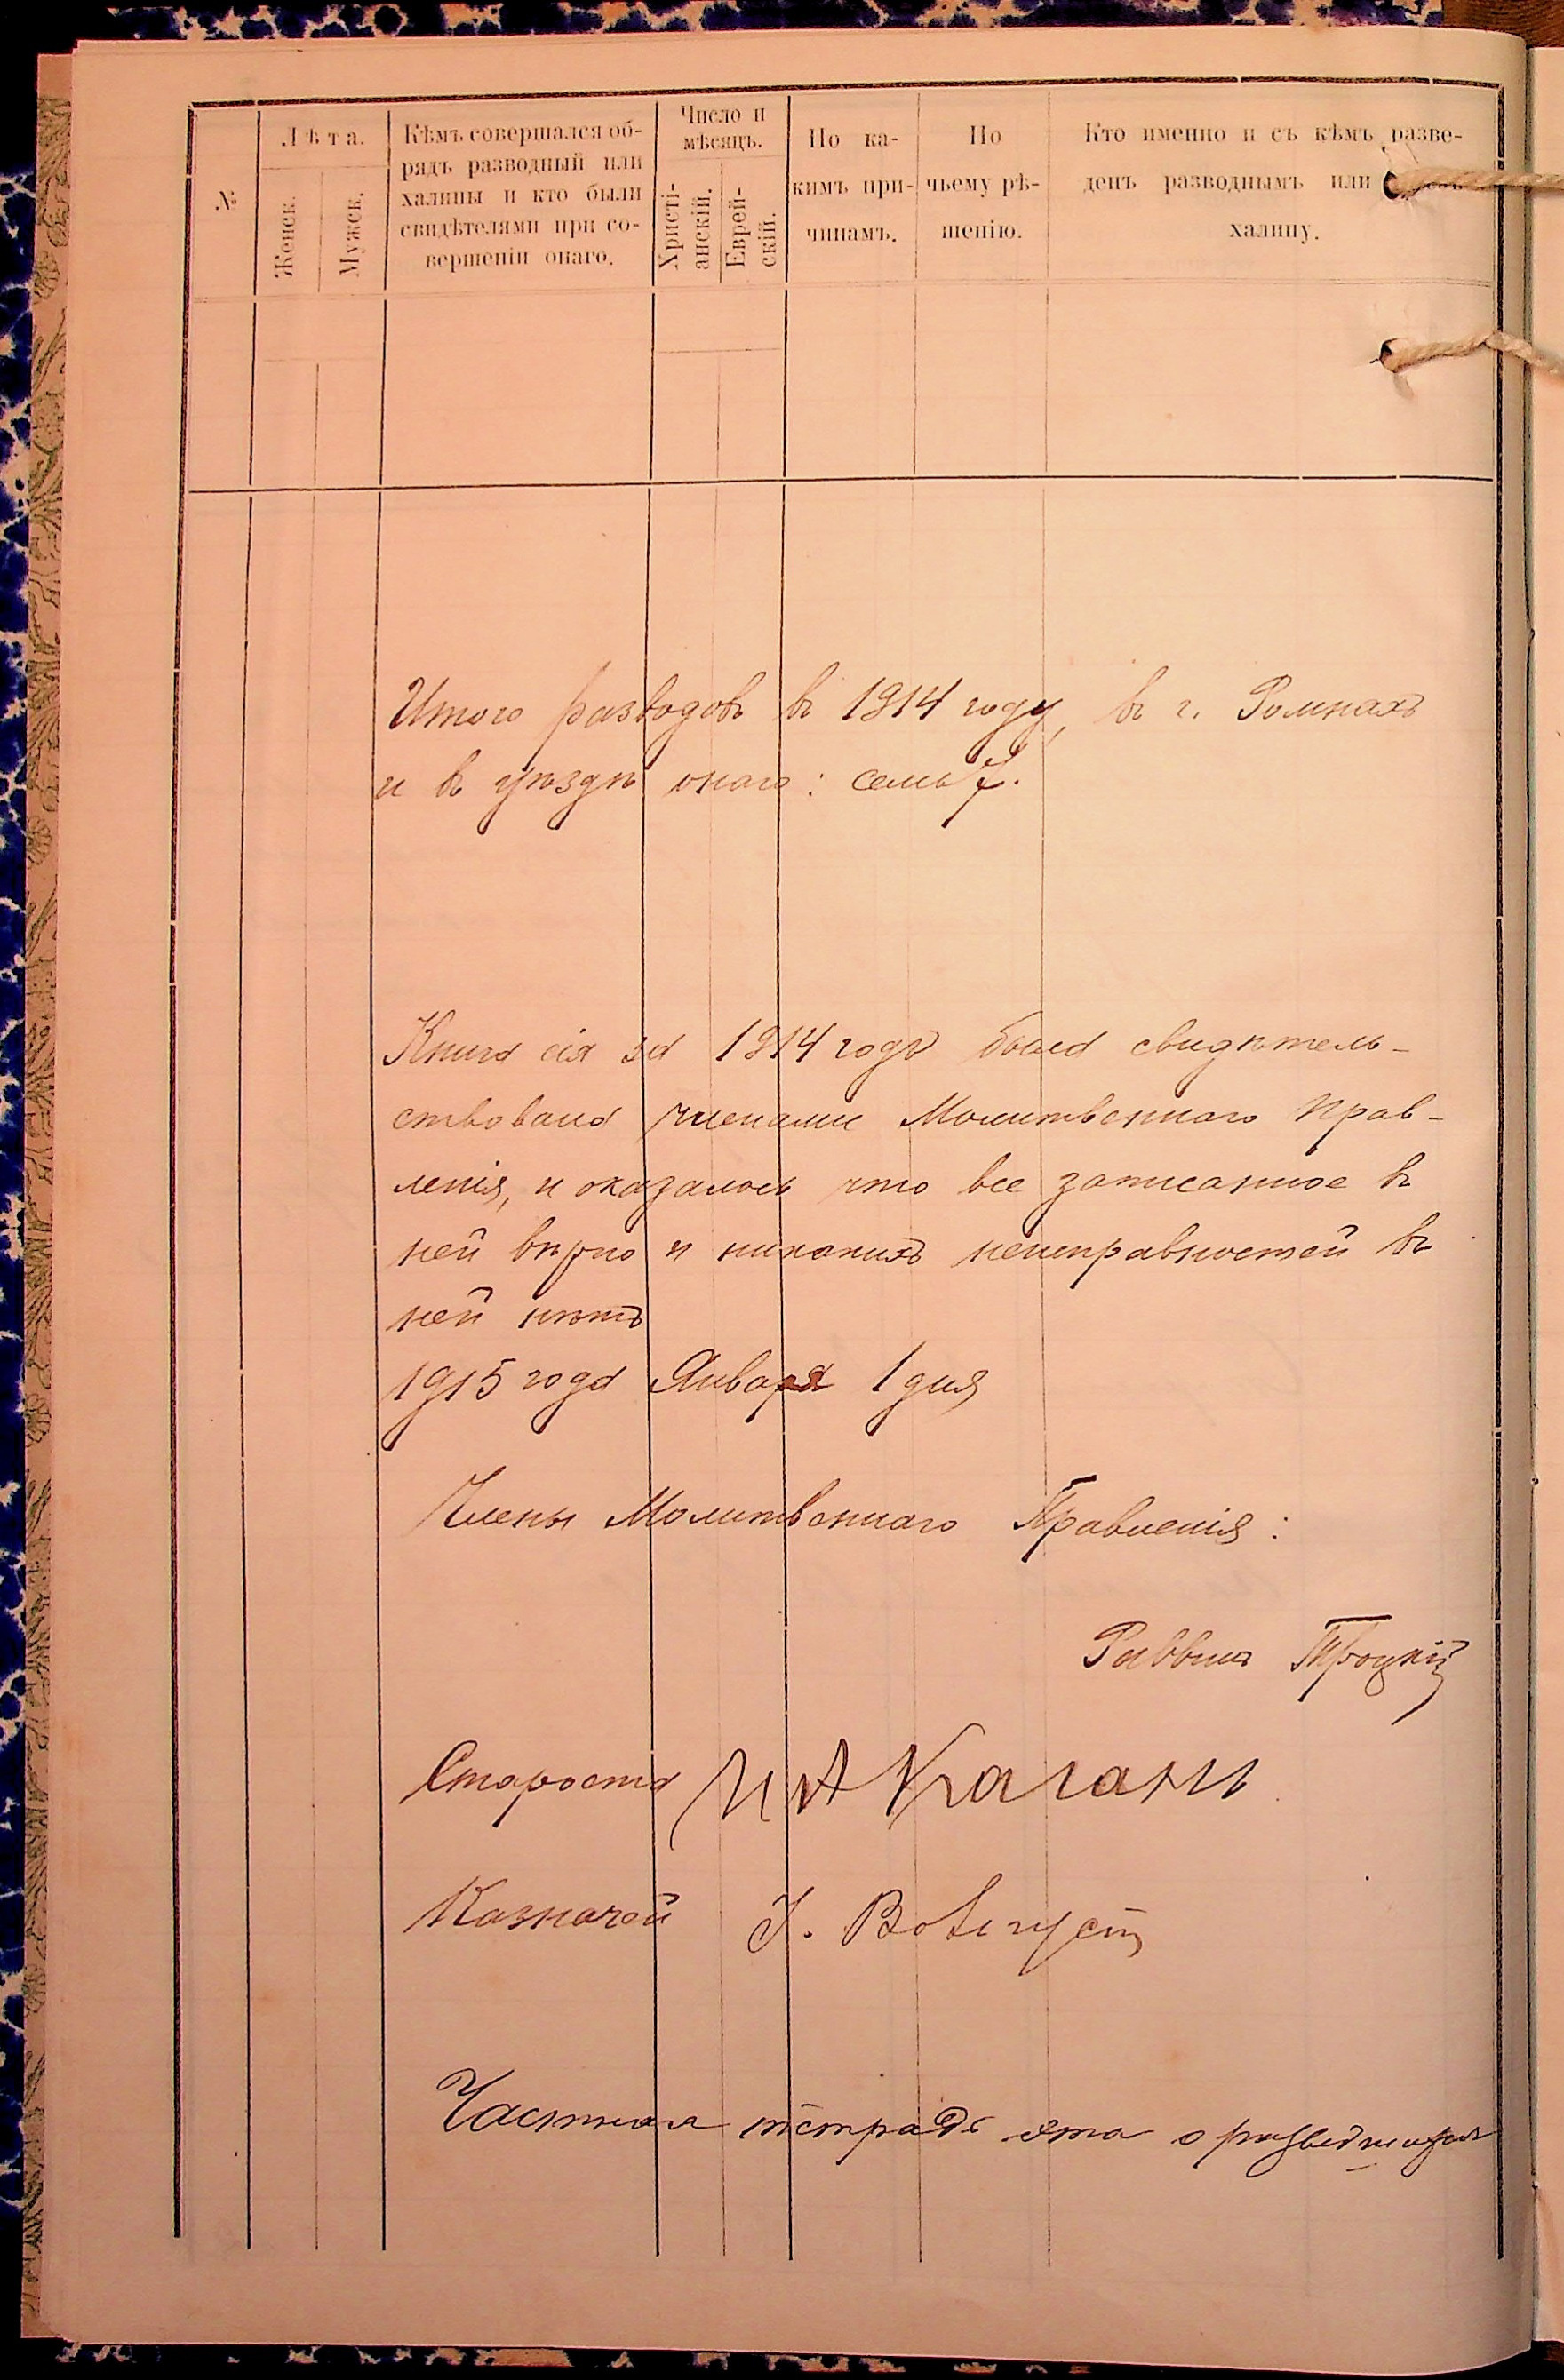 №
Лѣта.
Женск.
Мужск.
Кѣмъ совершался об-
рядъ разводный или
халицы и кто были
свидѣтелями при со-
вершеніи онаго.
Число и
мѣсяцъ.
Христі-
анскій.
Еврей-
скій.
По ка-
кимъ при-
чинамъ.
По
чьему рѣ-
шенію.
Кто именно и съ кѣмъ разве-
денъ разводнымъ или
халицу.
Итого разводовъ въ 1914 году, въ г. Ромнахъ
и въ уѣздѣ онаго: семь 7.
Книга сія за 1914 годъ была свидѣтель-
ствована членами Молитвеннаго Прав-
ленія, и оказалось что все записанное въ
ней вѣрно и никакихъ неисправностей въ
ней нѣтъ
1915 года Января 1 дня
Члены Молитвеннаго Правленія:
Раввинъ Троцкій
Староста И А Каганъ
Казначей
тетрадь эта о